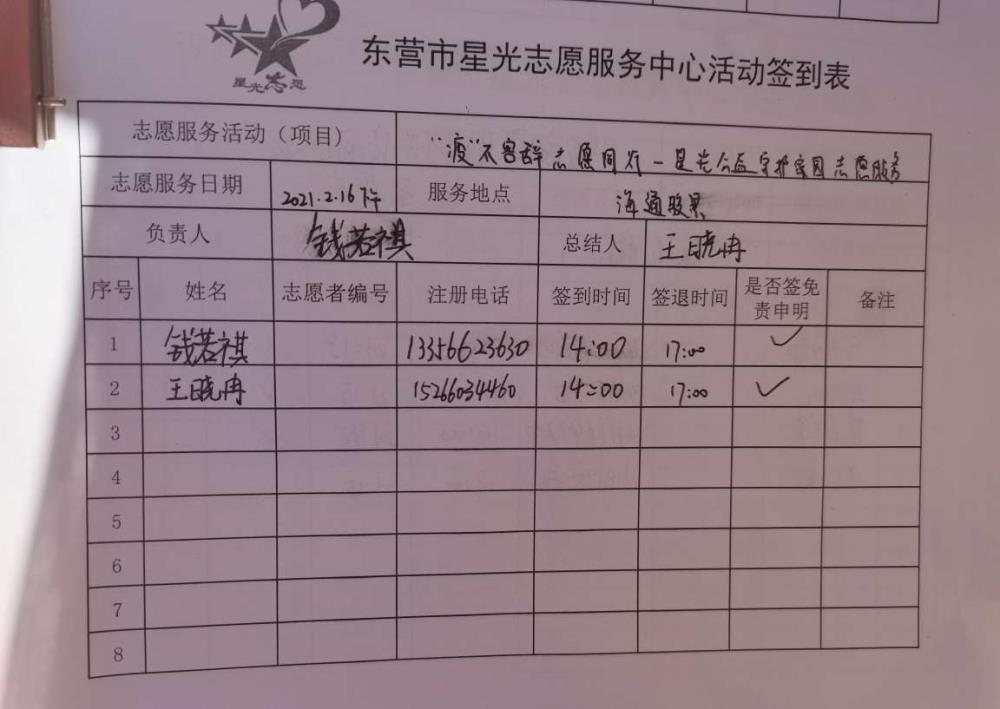 星光志愿
东营市星光志愿服务中心活动签到表
志愿服务活动（项目） “渡”不容辞 志愿同行－星光公益守护家园志愿服务
志愿服务日期 2021.2.16下午 服务地点 海通
负责人 钱若祺 总结人 王晓冉
序号 姓名 志愿者编号 注册电话 签到时间 签退时间 是否签免责申明 备注
1 钱若祺 13356623630 14:00 17:00 ✓
2 王晓冉 15266034460 14:00 17:00 ✓
3
4
5
6
7
8